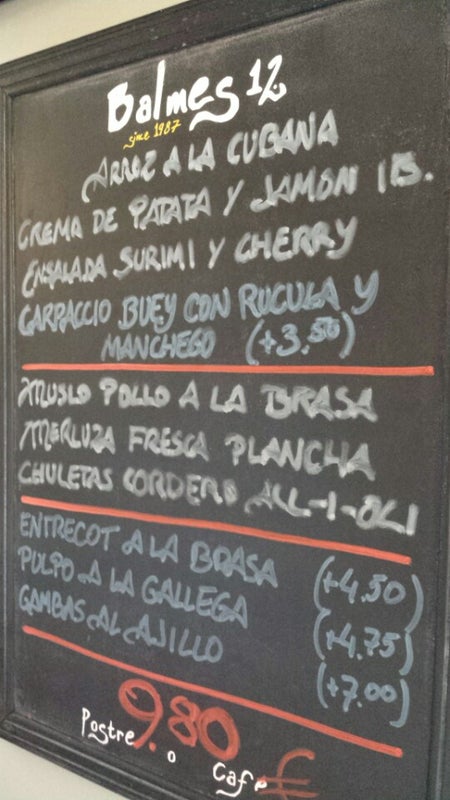 Balmes 12
since 1987
ARROZ A LA CUBANA
CREMA DE PATATA Y JAMON IB.
ENSALADA SURIMI Y CHERRY
CARPACCIO BUEY CON RUCULA Y
MANCHEGO (+3.50)
MUSLO POLLO A LA BRASA
MERLUZA FRESCA PLANCHA
CHULETAS CORDERO ALL-I-OLI
ENTRECOT A LA BRASA (+4.50)
PULPO A LA GALLEGA (+4.75)
GAMBAS AL AJILLO (+7.00)
9.80 €
Postre o Café